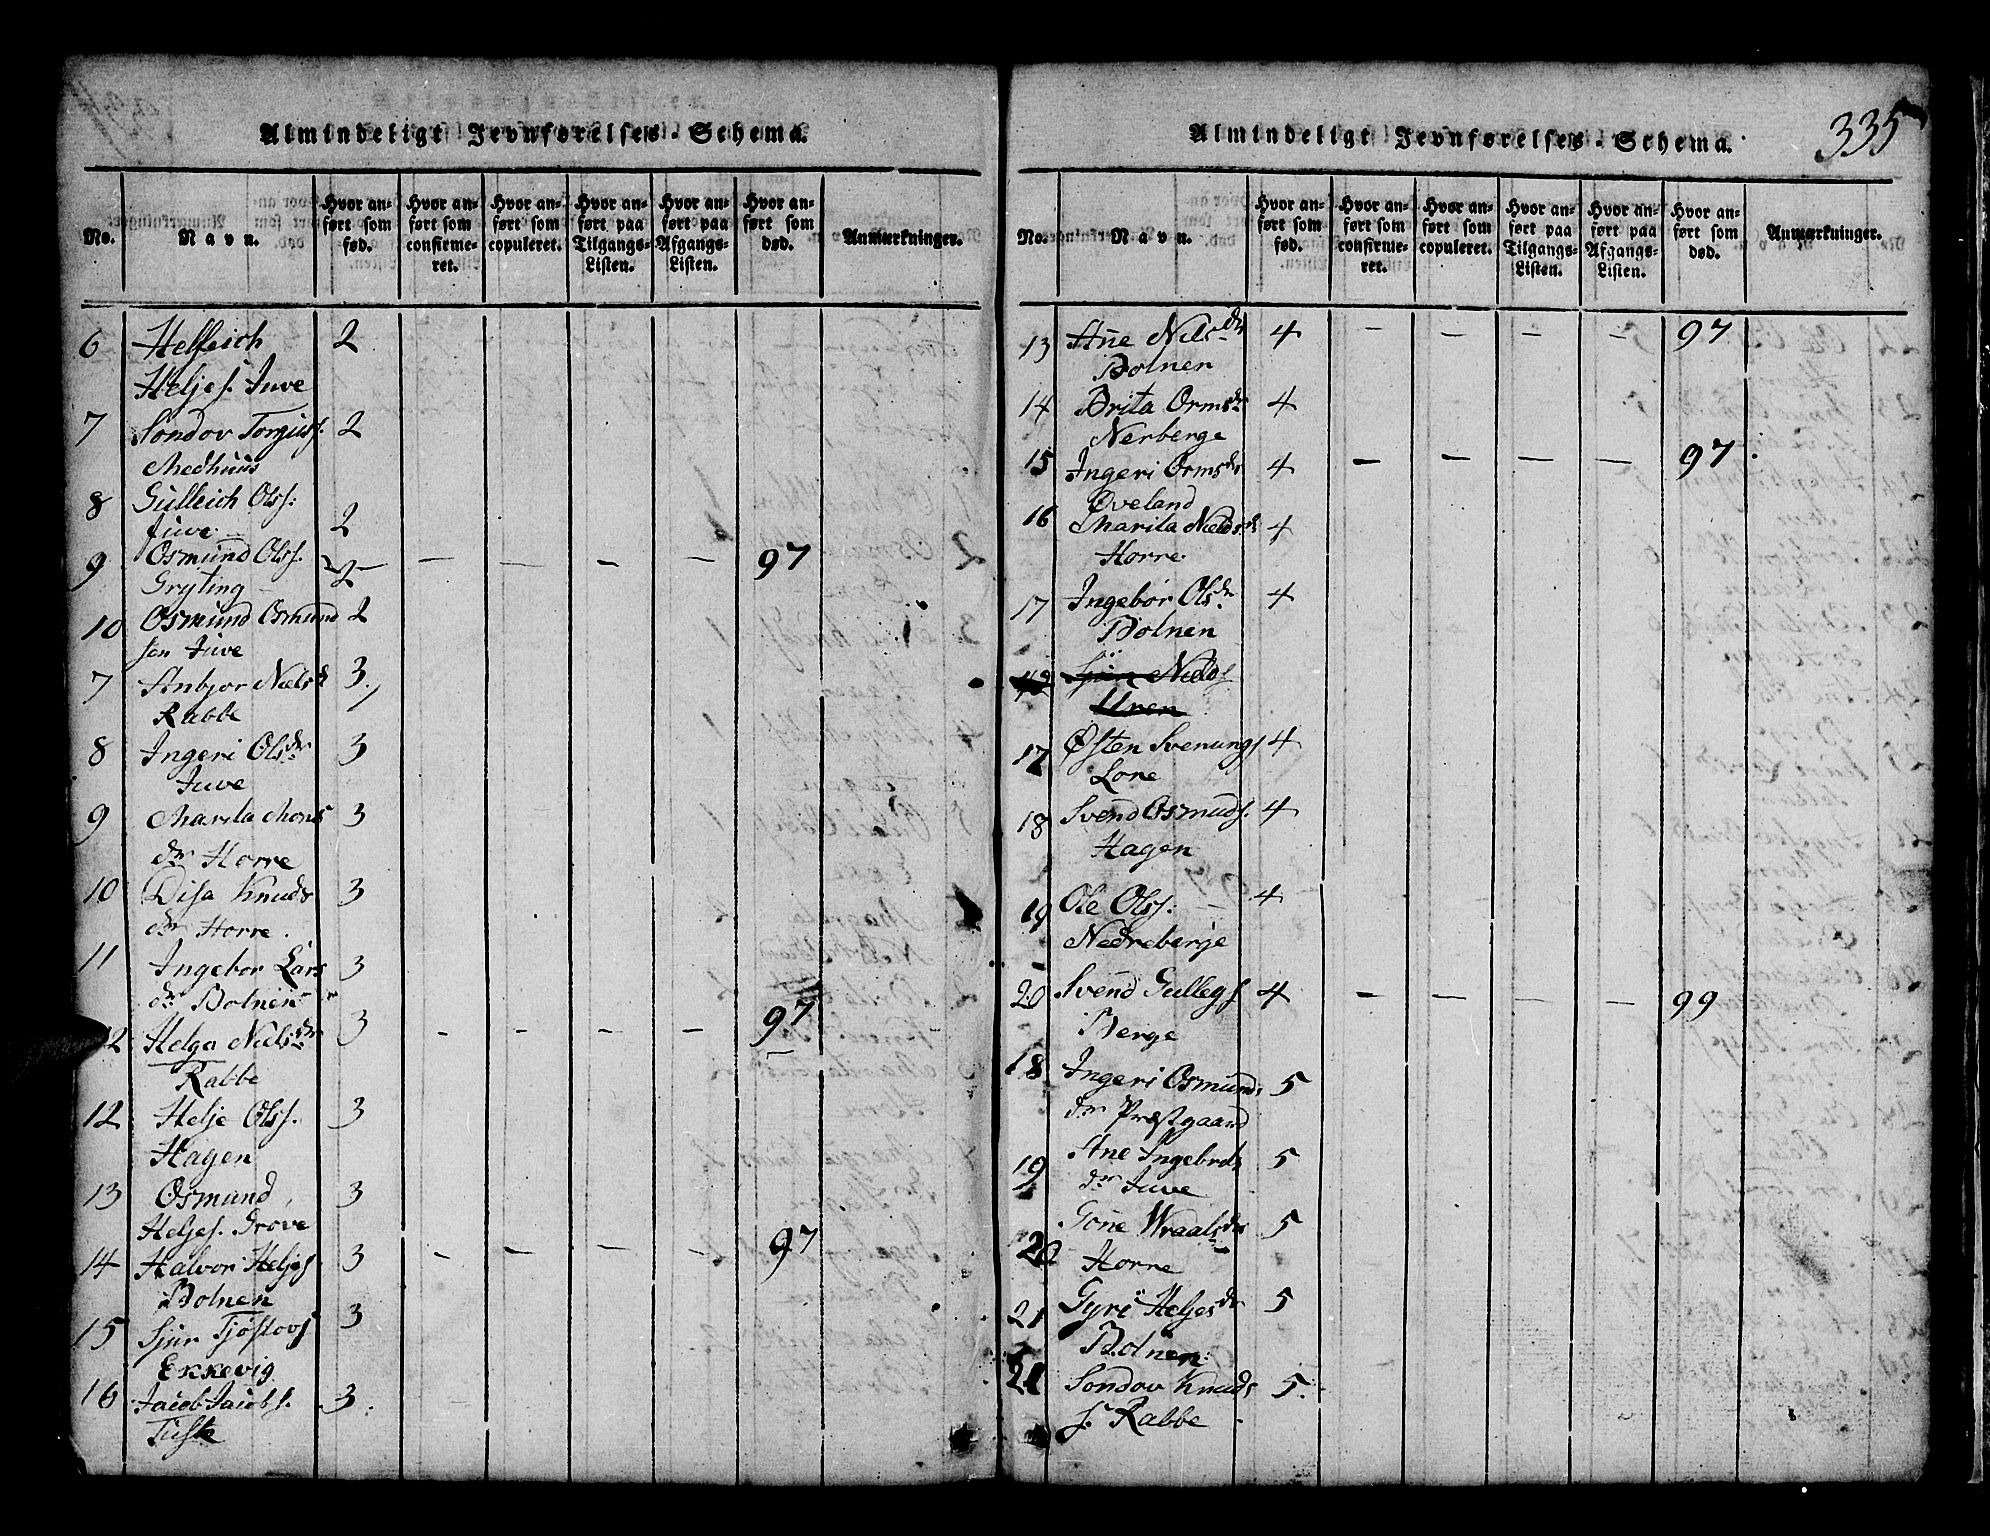 335
Almindeligt Jevnførelses-Schema.
No. Navn. Hvor anført som fød. Hvor anført som confirmeret. Hvor anført som copuleret. Hvor anført paa Tilgangs-Listen. Hvor anført paa Afgangs-Listen. Hvor anført som død. Anmærkninger.
6 Helleich 2
Heljes. Juve
7 Sondov Torgiuss. 2
Medhuus
8 Gulleich Olss:
Juve 2
9 Osmund Olss. — — — — 97
Gryting 2
10 Osmund Osmund 2
sen Juve
7 Anbjor Niels dr 3
Rabbe
8 Ingeri Ols dr 3
Juve
9 Marita Mons 3
dr Horre
10 Disa Knuds 3
dr Horre.
11 Ingebor Lars 3
dr Bolnen
12 Helga Niels dr 3 - - - - 97
Rabbe
12 Helje Olss. 3
Hagen
13 Osmund 3
Heljes. Grove
14 Halvor Heljes 3 - - - - 97
Bolnen
15 Sjur Tjøstovs 3
Ekkevig
16 Jacob Jacobs. 3.
Tusk
Almindeligt Jevnførelses-Schema.
No. Navn. Hvor anført som fød. Hvor anført som confirmeret. Hvor anført som copuleret. Hvor anført paa Tilgangs-Listen. Hvor anført paa Afgangs-Listen. Hvor anført som død. Anmærkninger.
13 Ane Nils dr 4 - - - - 97
Bolnen
14 Brita Orms dr 4
Nerberge
15 Ingeri Orms dr 4 - - - - 97
Øveland
16 Marita Nields dr 4
Horre.
17 Ingebor Ols dr 4
Bolnen
Nields
Uren
17 Østen Svenungs 4
Lone
18 Svend Osmuds. 4
Hagen
19 Ole Olss. 4
Nedreberge
20 Svend Gullegs 4 - - - - 99
Berge
18 Ingeri Osmunds 5
dr Præstgaard
19 Ane Ingebrets 5
dr Juve
20 Gone Wraals dr 5
Horre
21 Gyri Heljes dr 5
Bolnen
21 Sondov Knuds 5.
s. Rabbe